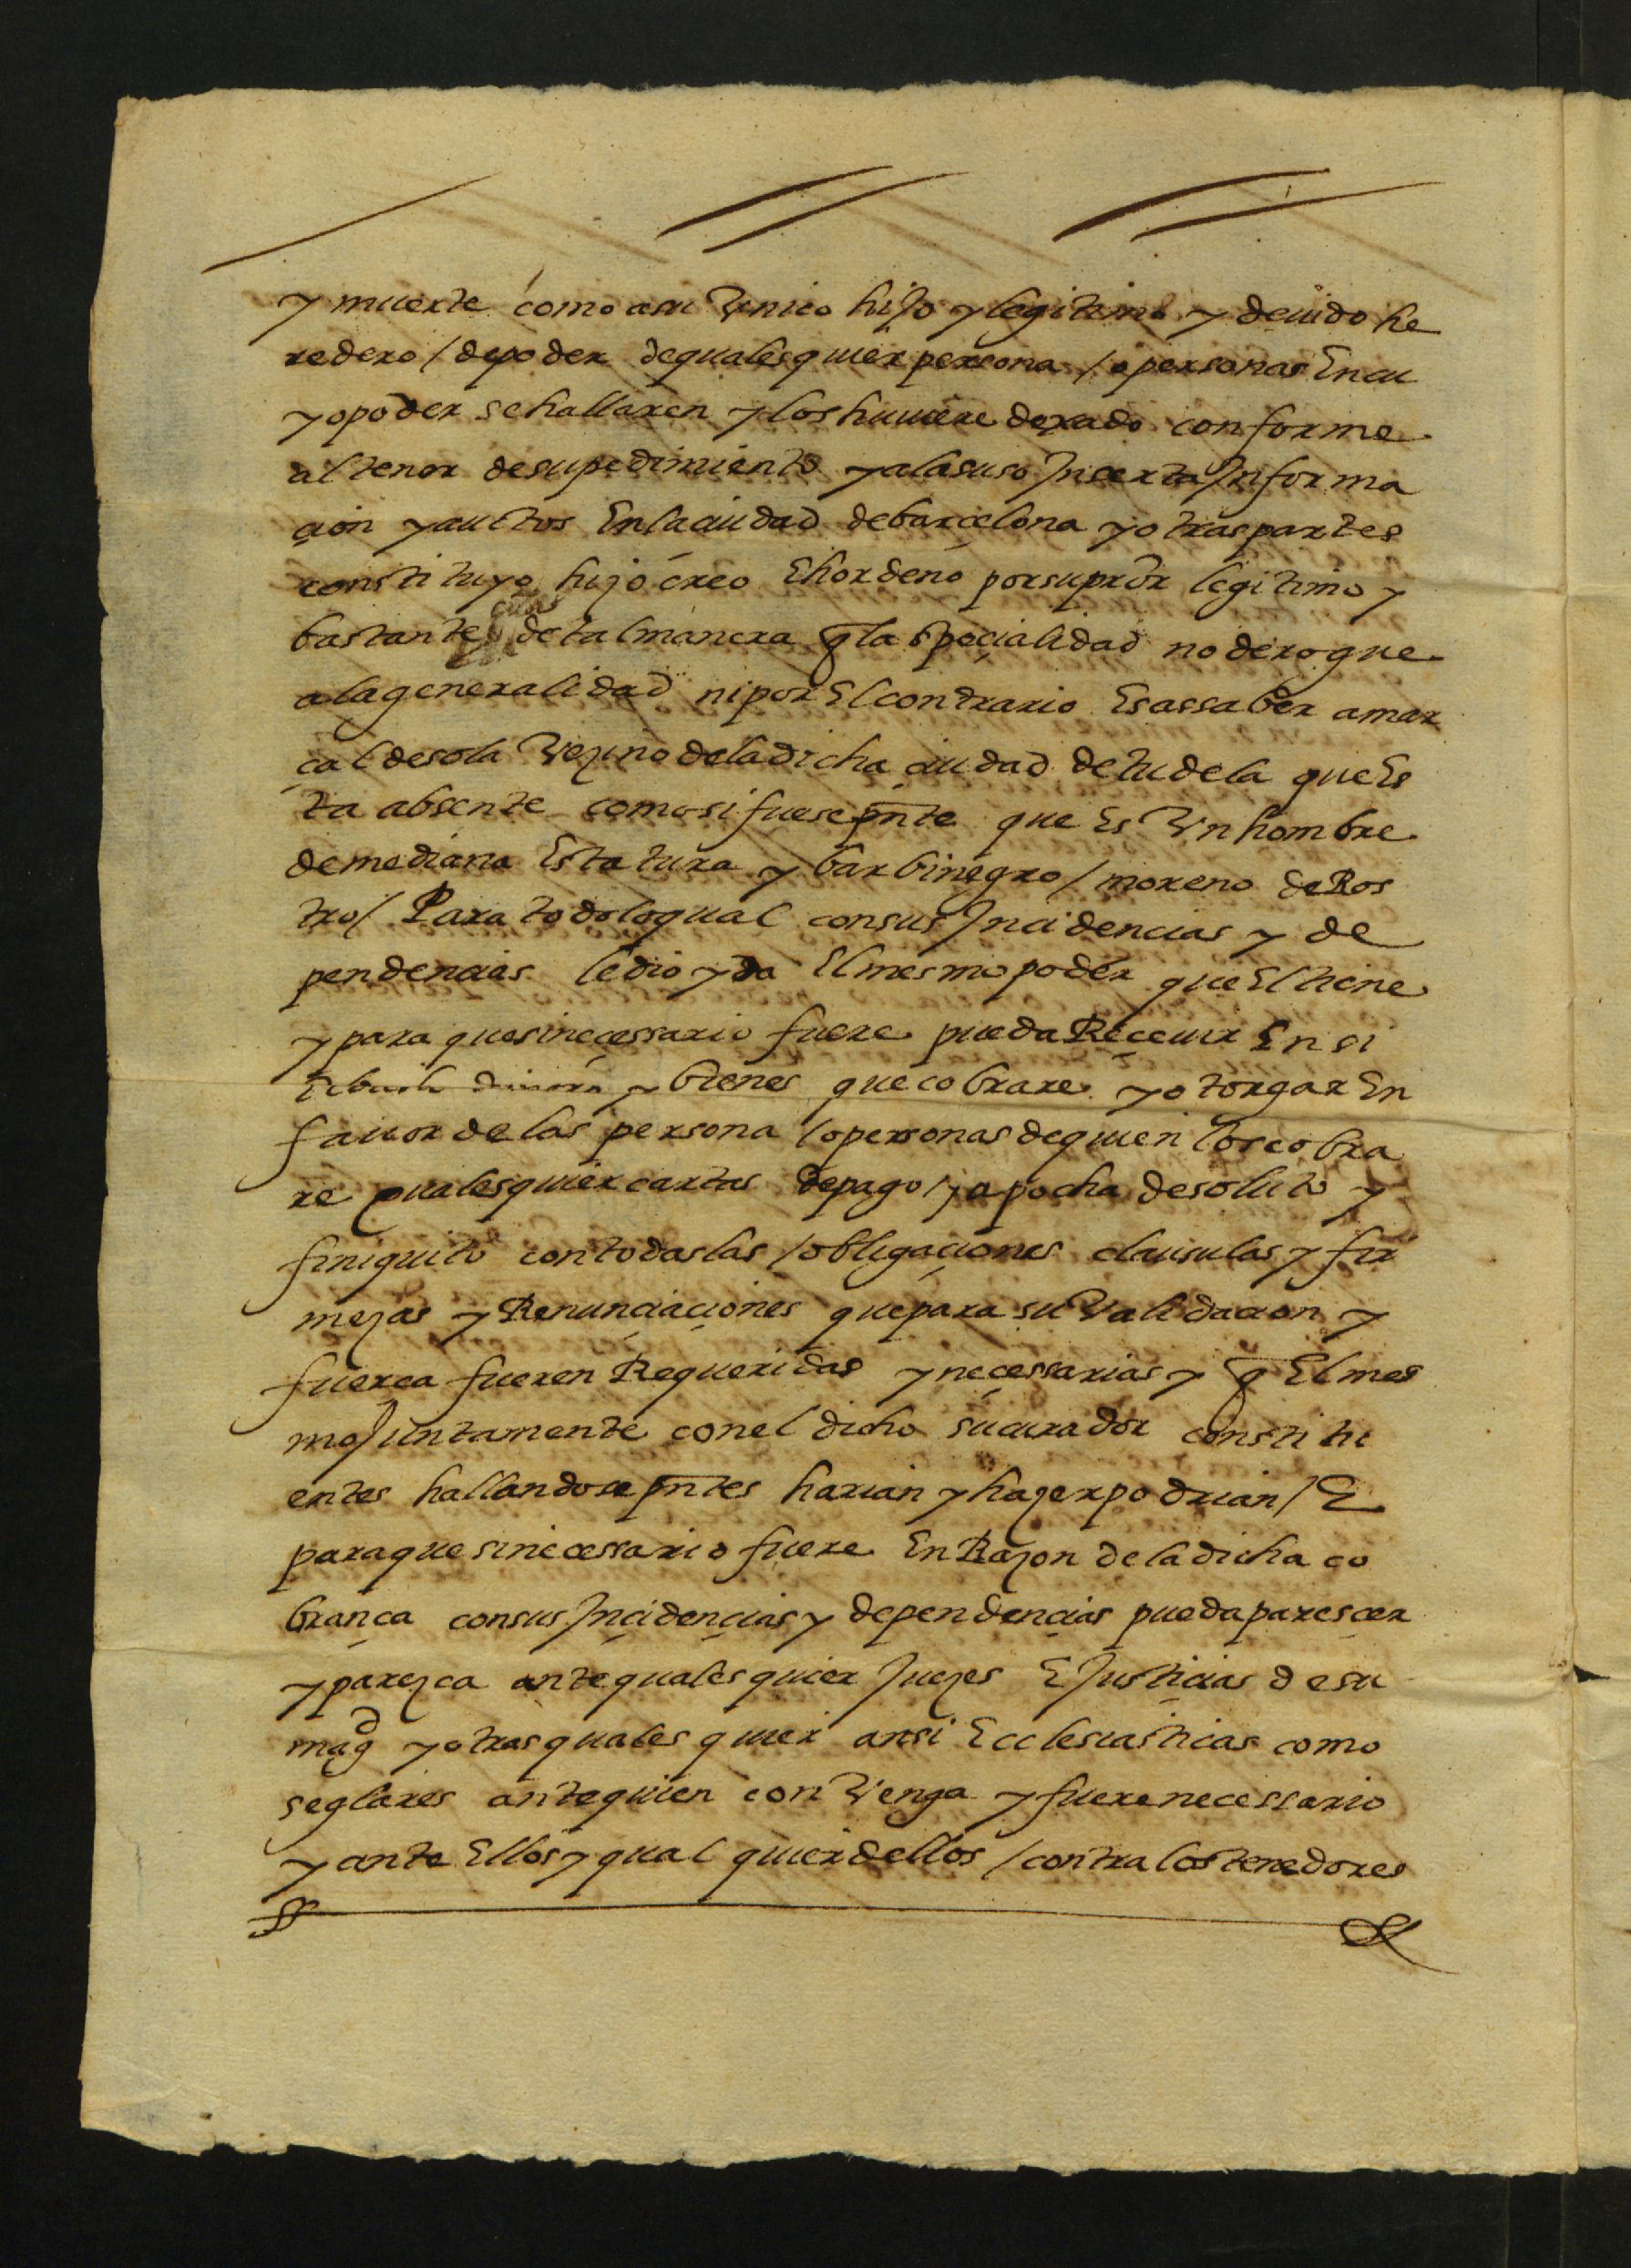 y muerte como a su Vnico hijo y legitimo y deuido he
redero / de poder de qualesquier persona / o personas En cu
yo poder se hallaren y los huuiere dexado conforme
al tenor de su pedimiento y a la suso Inserta Informa
çion y auctos En la ciudad de barçelona y otras partes
constituyo hizo creo E hordeno por su pror legitimo y
bastante de tal manera q la Speçialidad no derogue
a la generalidad ni por El contrario Es assaber a mar
çal de sola Vezino de la dicha ciudad de tudela que Es
ta absente como si fuese pnte que Es Vn hombre
de mediana Estatura y barbinegro / moreno de Ros
tro / Para todo lo qual con sus Incidencias y de
pendencias le dio y da El mesmo poder que El tiene
y para que si neçessario fuere pueda Reçeuir En si
y bienes que cobrare y otorgar En
fauor de las persona / o personas de quien los cobra
re qualesquier cartas de pago / y apocha de soluto y
finiquito con todas las / obligaçiones clausulas y fir
mezas y Renunçiaçiones que para su Validacion y
fuerça fueren Requeridas y neçessarias y q El mes
mo Juntamente con el dicho su curador constitu
entes hallandose pntes harian y hazer podrian / E
para que si necessario fuere En Razon de la dicha co
brança con sus Inçidençias y dependençias pueda paresçer
y parezca ante qualesquier Juezes E Justiçias de su
magd y otras qualesquier ansi Ecclesiasticas como
seglares ante quien conVenga y fuere necessario
y ante Ellos y qualquier dellos / contra los tenedores